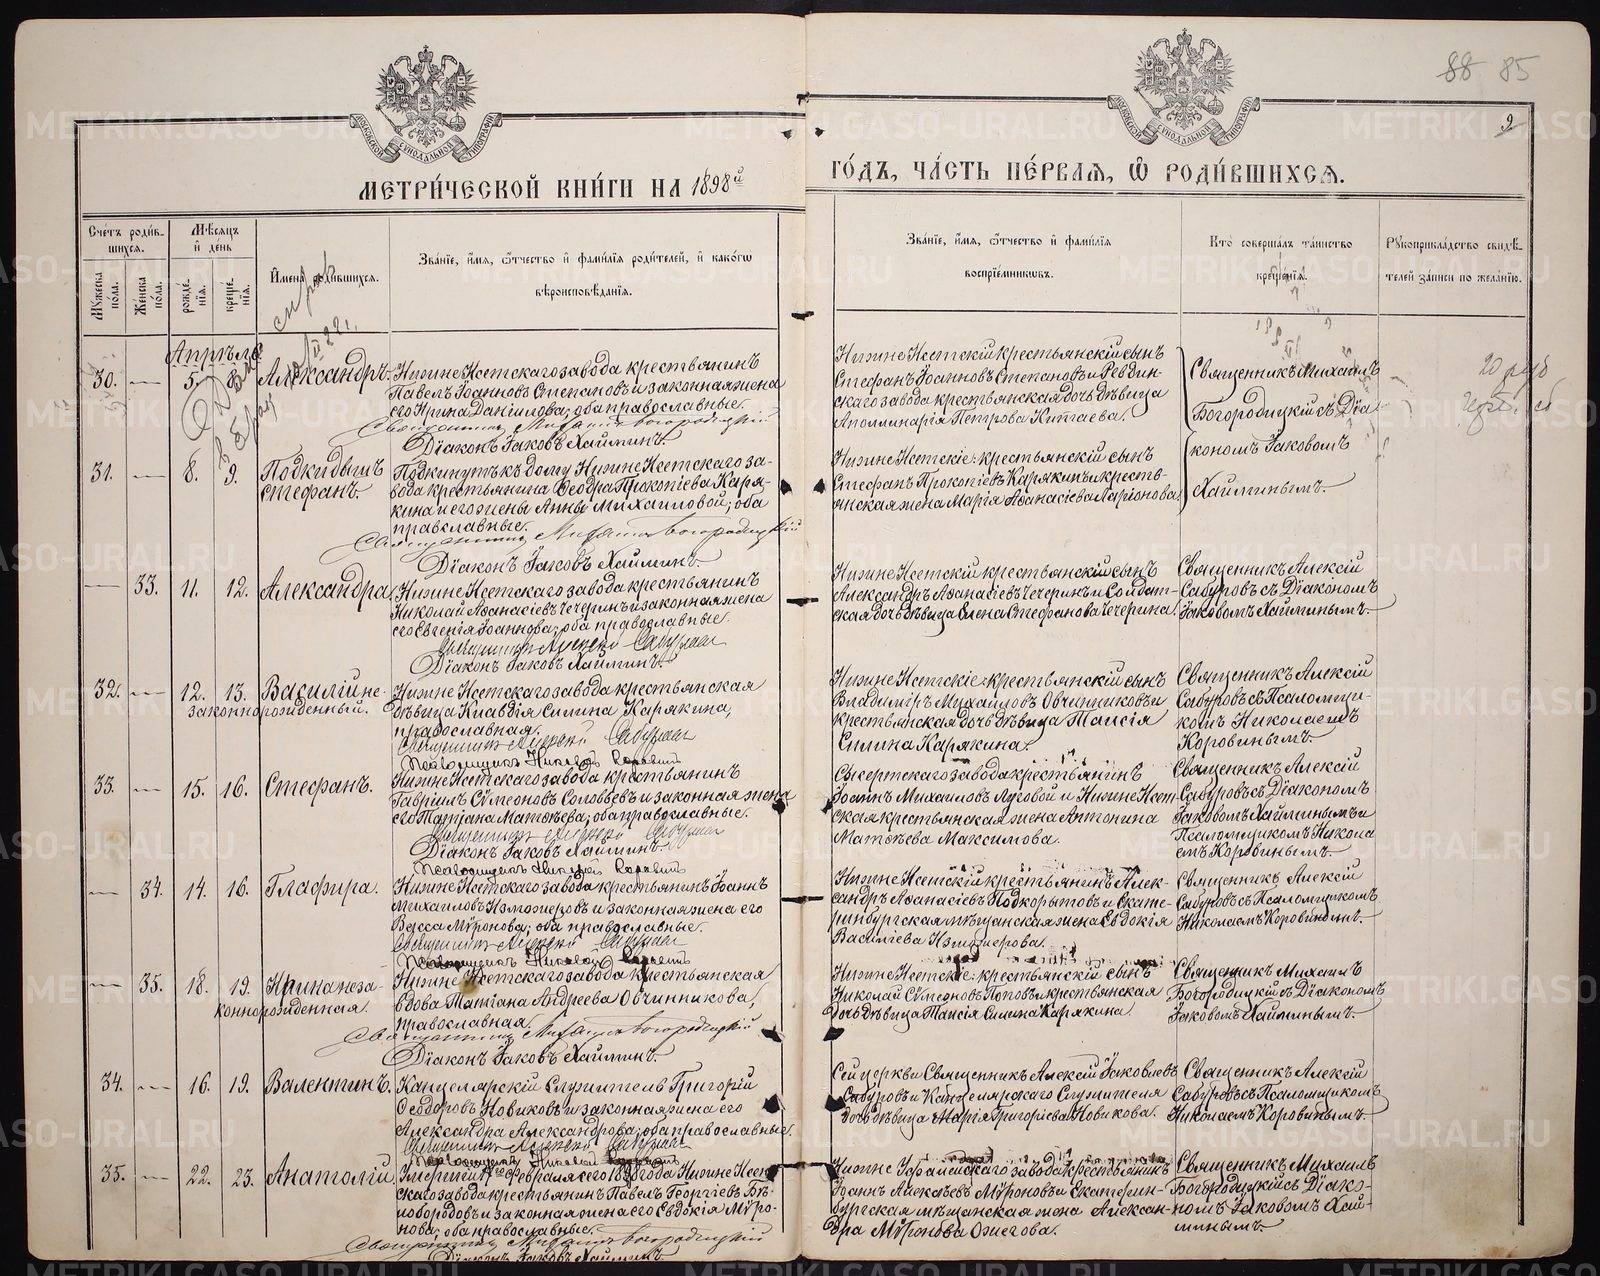 88 85
9
МЕТРИ́ЧЕСКОЙ КНИ́ГИ НА 1898й
ГО́ДЪ, ЧА́СТЬ ПЕ́РВАѦ, Ѡ РОДИ́ВШИХСѦ.
Сче́тъ роди́в-
шихсѧ.
Мѣ́сѧцъ
и́ де́нь
Мꙋ́жеска
по́ла.
Же́нска
по́ла.
рожде́-
нїѧ.
креще́-
нїѧ.
И́мена роди́вшихсѧ.
Зва́нїе, и́мѧ, ѻ҆́тчество и́ фами́лїѧ роди́телей, и́ како́гѡ
вѣроисповѣ́данїѧ.
Зва́нїе, и́мѧ, ѻ҆́тчество и́ фами́лїѧ
воспрїе́мниковъ.
Кто̀ соверша́лъ та́инство
креще́нїѧ.
Рꙋкоприкла́дство свидѣ́-
телей за́писи по жела́нїю.
Апрѣль
30. — 5. 8. Александръ.
Нижне Исетскаго завода крестьянинъ
Павелъ Іоанновъ Степановъ и законная жена
его Ирина Даніилова; оба православные.
Священникъ Михаилъ Богородицкій
Діаконъ Іаковъ Хайминъ.
Нижне Исетскій крестьянскій сынъ
Стефанъ Іоанновъ Степановъ и Ревдин-
скаго завода крестьянская дочь дѣвица
Аполлинарія Петрова Китаева.
Священникъ Михаилъ
Богородицкій съ Діа-
кономъ Іаковомъ
Хайминымъ.
31. — 8. 9. Подкидышъ
Стефанъ.
Подкинутъ къ дому Нижне Исетскаго за-
вода крестьянина Ѳеодора Прокопіева Каря-
кина и его жены Анны Михаиловой; оба
православные.
Священникъ Михаилъ Богородицкій
Діаконъ Іаковъ Хайминъ.
Нижне Исетскіе: крестьянскій сынъ
Стефанъ Прокопіевъ Карякинъ и кресть-
янская жена Марія Аѳанасіева Ларіонова.
— 33. 11. 12. Александра.
Нижне Исетскаго завода крестьянинъ
Николай Аѳанасіевъ Чечеринъ и законная жена
его Евгенія Іоаннова; оба православные.
Священникъ Алексій Сабуровъ
Діаконъ Іаковъ Хайминъ.
Нижне Исетскій крестьянскій сынъ
Александръ Аѳанасіевъ Чечеринъ и Солдат-
ская дочь дѣвица Елена Стефанова Чечерина.
Священникъ Алексій
Сабуровъ съ Діакономъ
Іаковомъ Хайминымъ.
32. — 12. 13. Василій не-
законнорожденный.
Нижне Исетскаго завода крестьянская
дѣвица Клавдія Силина Карякина,
православная.
Священникъ Алексій Сабуровъ
Псаломщикъ Николай Коровинъ
Нижне Исетскіе: крестьянскій сынъ
Владиміръ Михаиловъ Овчинниковъ и
крестьянская дочь дѣвица Таисія
Силина Карякина.
Священникъ Алексій
Сабуровъ съ Псаломщи-
комъ Николаемъ
Коровинымъ.
33. — 15. 16. Стефанъ.
Нижне Исетскаго завода крестьянинъ
Гавріилъ Сѵмеоновъ Соловьевъ и законная жена
его Татіана Матѳѣева; оба православные.
Священникъ Алексій Сабуровъ
Діаконъ Іаковъ Хайминъ.
Псаломщикъ Николай Коровинъ
Сысертскаго завода крестьянинъ
Іоаннъ Михаиловъ Луговой и Нижне Исет-
ская крестьянская жена Антонина
Матѳѣева Максимова.
Священникъ Алексій
Сабуровъ съ Діакономъ
Іаковомъ Хайминымъ и
Псаломщикомъ Никола
емъ Коровинымъ.
— 34. 14. 16. Глафира.
Нижне Исетскаго завода крестьянинъ Іоаннъ
Михаиловъ Изможеровъ и законная жена его
Васса Мѵронова; оба православные.
Священникъ Алексій Сабуровъ
Псаломщикъ Николай Коровинъ
Нижне Исетскій крестьянинъ Алек-
сандръ Аѳанасіевъ Подкорытовъ и Екате-
ринбургская мѣщанская жена Евдокія
Васильева Изможерова.
Священникъ Алексій
Сабуровъ съ Псаломщикомъ
Николаемъ Коровинымъ.
— 35. 18. 19. Ирина неза-
коннорожденная.
Нижне Исетскаго завода крестьянская
вдова Татіана Андреева Овчинникова,
православная.
Священникъ Михаилъ Богородицкій
Діаконъ Іаковъ Хайминъ.
Нижне Исетскіе: крестьянскій сынъ
Николай Сѵмеоновъ Поповъ и крестьянская
дочь дѣвица Таисія Силина Карякина.
Священникъ Михаилъ
Богородицкій съ Діакономъ
Іаковомъ Хайминымъ.
34. — 16. 19. Валентинъ.
Канцелярскій Служитель Григорій
Ѳеодоровъ Новиковъ и законная жена его
Александра Александрова; оба православные.
Священникъ Алексій Сабуровъ
Псаломщикъ Николай Коровинъ
Сей церкви Священникъ Алексій Іаковлевъ
Сабуровъ и Канцелярскаго Служителя
дочь дѣвица Марія Григоріева Новикова.
Священникъ Алексій
Сабуровъ съ Псаломщикомъ
Николаемъ Коровинымъ.
35. — 22. 23. Анатолій.
Умершій 17го Февраля сего 1898 года Нижне Исет-
скаго завода крестьянинъ Павелъ Георгіевъ Бѣ-
лобородовъ и законная жена его Евдокія Мѵро-
нова; оба православные.
Священникъ Михаилъ Богородицкій
Діаконъ Іаковъ Хайминъ.
Нижне Уфалейскаго завода крестьянинъ
Іоаннъ Алексѣевъ Мѵроновъ и Екатерин-
бургская мѣщанская жена Алексан-
дра Мѵронова Ожегова.
Священникъ Михаилъ
Богородицкій съ Діако-
номъ Іаковомъ Хай-
минымъ.
METRIKI.GASO-URAL.RU